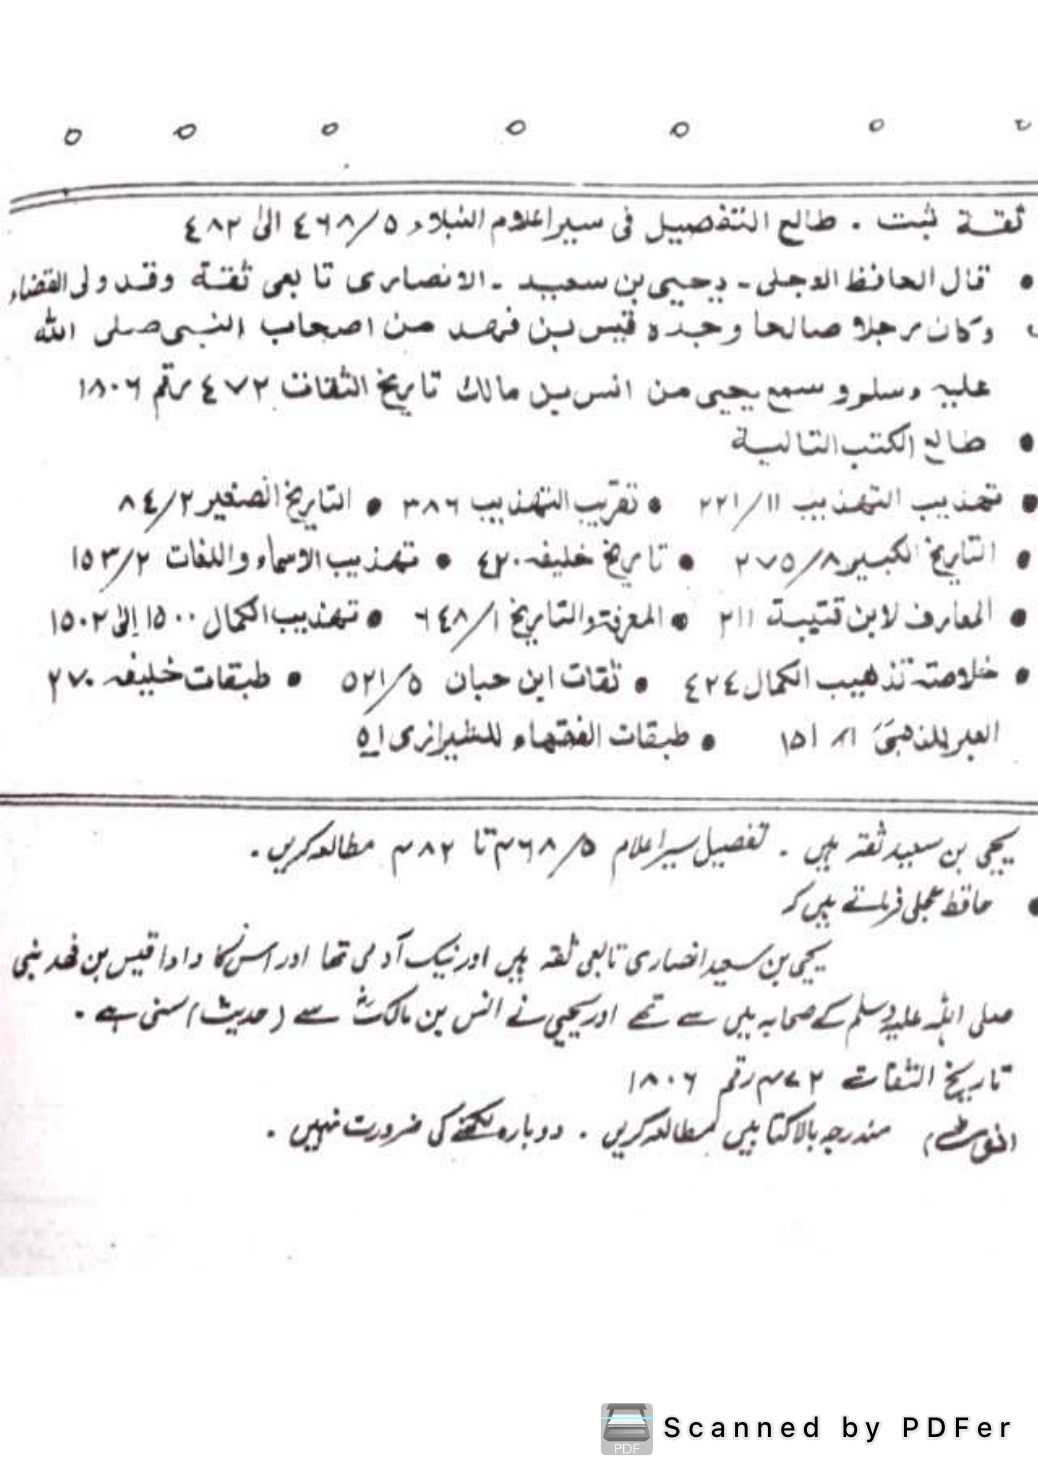 ثقة ثبت . طالع التفصيل فى سير اعلام النبلاء ٥/٤٦٨ الىٰ ٤٨٢
● قال الحافظ العجلى - يحيى بن سعيد - الانصارى تابعى ثقة وقد ولى القضاء
وكان رجلا صالحا وجده قيس بن فهد من اصحاب النبى صلى الله
عليه وسلم و سمع يحيى من انس بن مالك تاريخ الثقات ٤٧٢ رقم ١٨٠٦
● طالع الكتب التالية
● تهذيب التهذيب ١١/٢٢١ ● تقريب التهذيب ٣٨٦ ● التاريخ الصغير ٢/٨٤
● التاريخ الكبير ٨/٢٧٥ ● تاريخ خليفه ٤٢٠ ● تهذيب الاسماء واللغات ٢/١٥٣
● المعارف لابن قتيبة ٢١١ ● المعرفة والتاريخ ١/٦٤٨ ● تهذيب الكمال ١٥٠٠ إلى ١٥٠٢
● خلاصة تذهيب الكمال ٤٢٤ ● ثقات ابن حبان ٥/٥٢١ ● طبقات خليفه ٢٧٠
العبر للذهبى ١/١٥١ ● طبقات الفقهاء للشيرازى ٥١
یحیی بن سعید ثقہ ہیں ۔ تفصیل سیر اعلام ۵/۴۶۸ تا ۴۸۲ مطالعہ کریں ۔
● حافظ عجلی فرماتے ہیں کہ
یحیی بن سعید انصاری تابعی ثقہ ہیں اور نیک آدمی تھا اور اس کا دادا قیس بن فھد نبی
صلی اللہ علیہ وسلم کے صحابہ میں سے تھے اور یحیی نے انس بن مالکؓ سے (حدیث) سنی ہے ۔
تاریخ الثقات ۴۷۲ رقم ۱۸۰۶
(نوٹ) مندرجہ بالا کتابیں مطالعہ کریں ۔ دوبارہ لکھنے کی ضرورت نہیں ۔
PDF
Scanned by PDFer